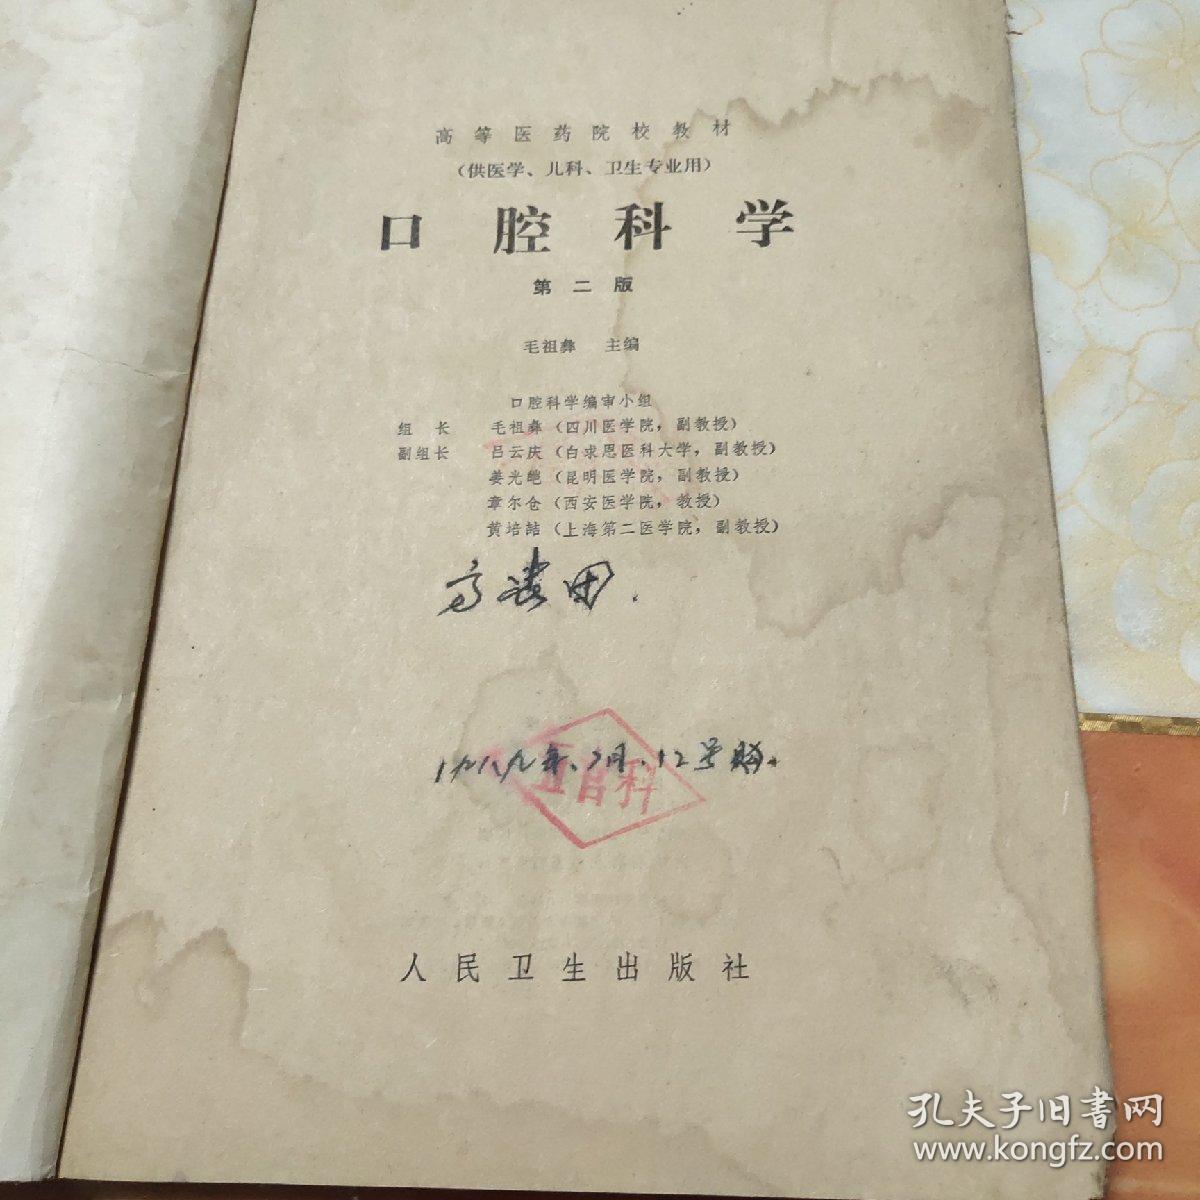 高等医药院校教材
（供医学、儿科、卫生专业用）
口腔科学
第二版
毛祖彝 主编
口腔科学编审小组
组长 毛祖彝（四川医学院，副教授）
副组长 吕云庆（白求恩医科大学，副教授）
姜光皑（昆明医学院，副教授）
章尔仓（西安医学院，教授）
黄培喆（上海第二医学院，副教授）
一九八九年、2月、12号购。
人民卫生出版社
孔夫子旧书网
www.kongfz.com